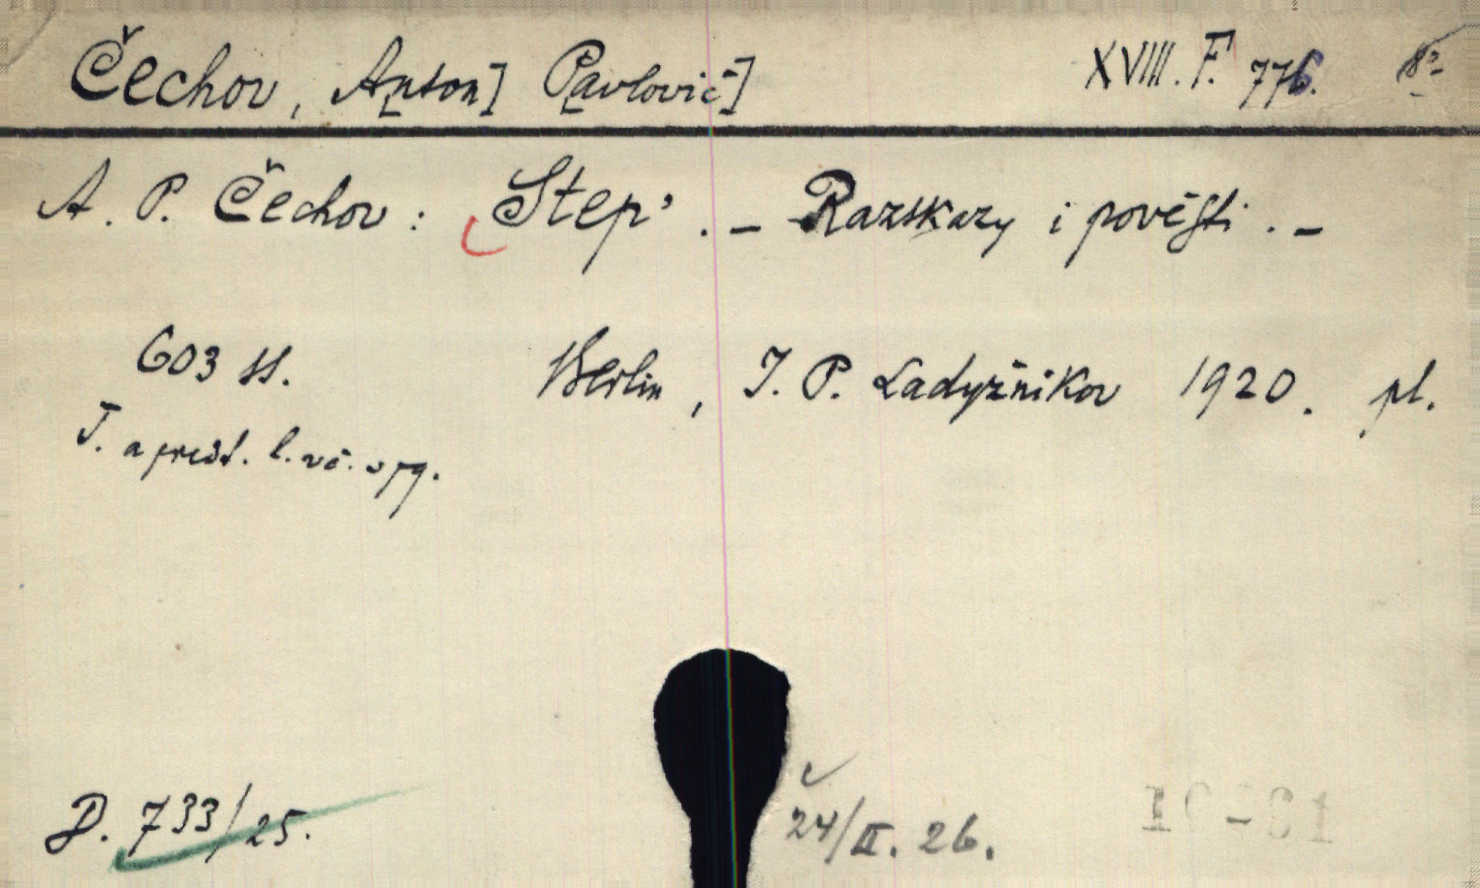 Čechov, A[nton] P[avlovič] XVIII. F. 776. 8°
A. P. Čechov: Step'. – Razskazy i pověsti. –
603 ss. Berlin, J. P. Ladyžnikov 1920. pl.
T. a předt. l. vč. v pg.
D. 733/25. 24/II. 26.